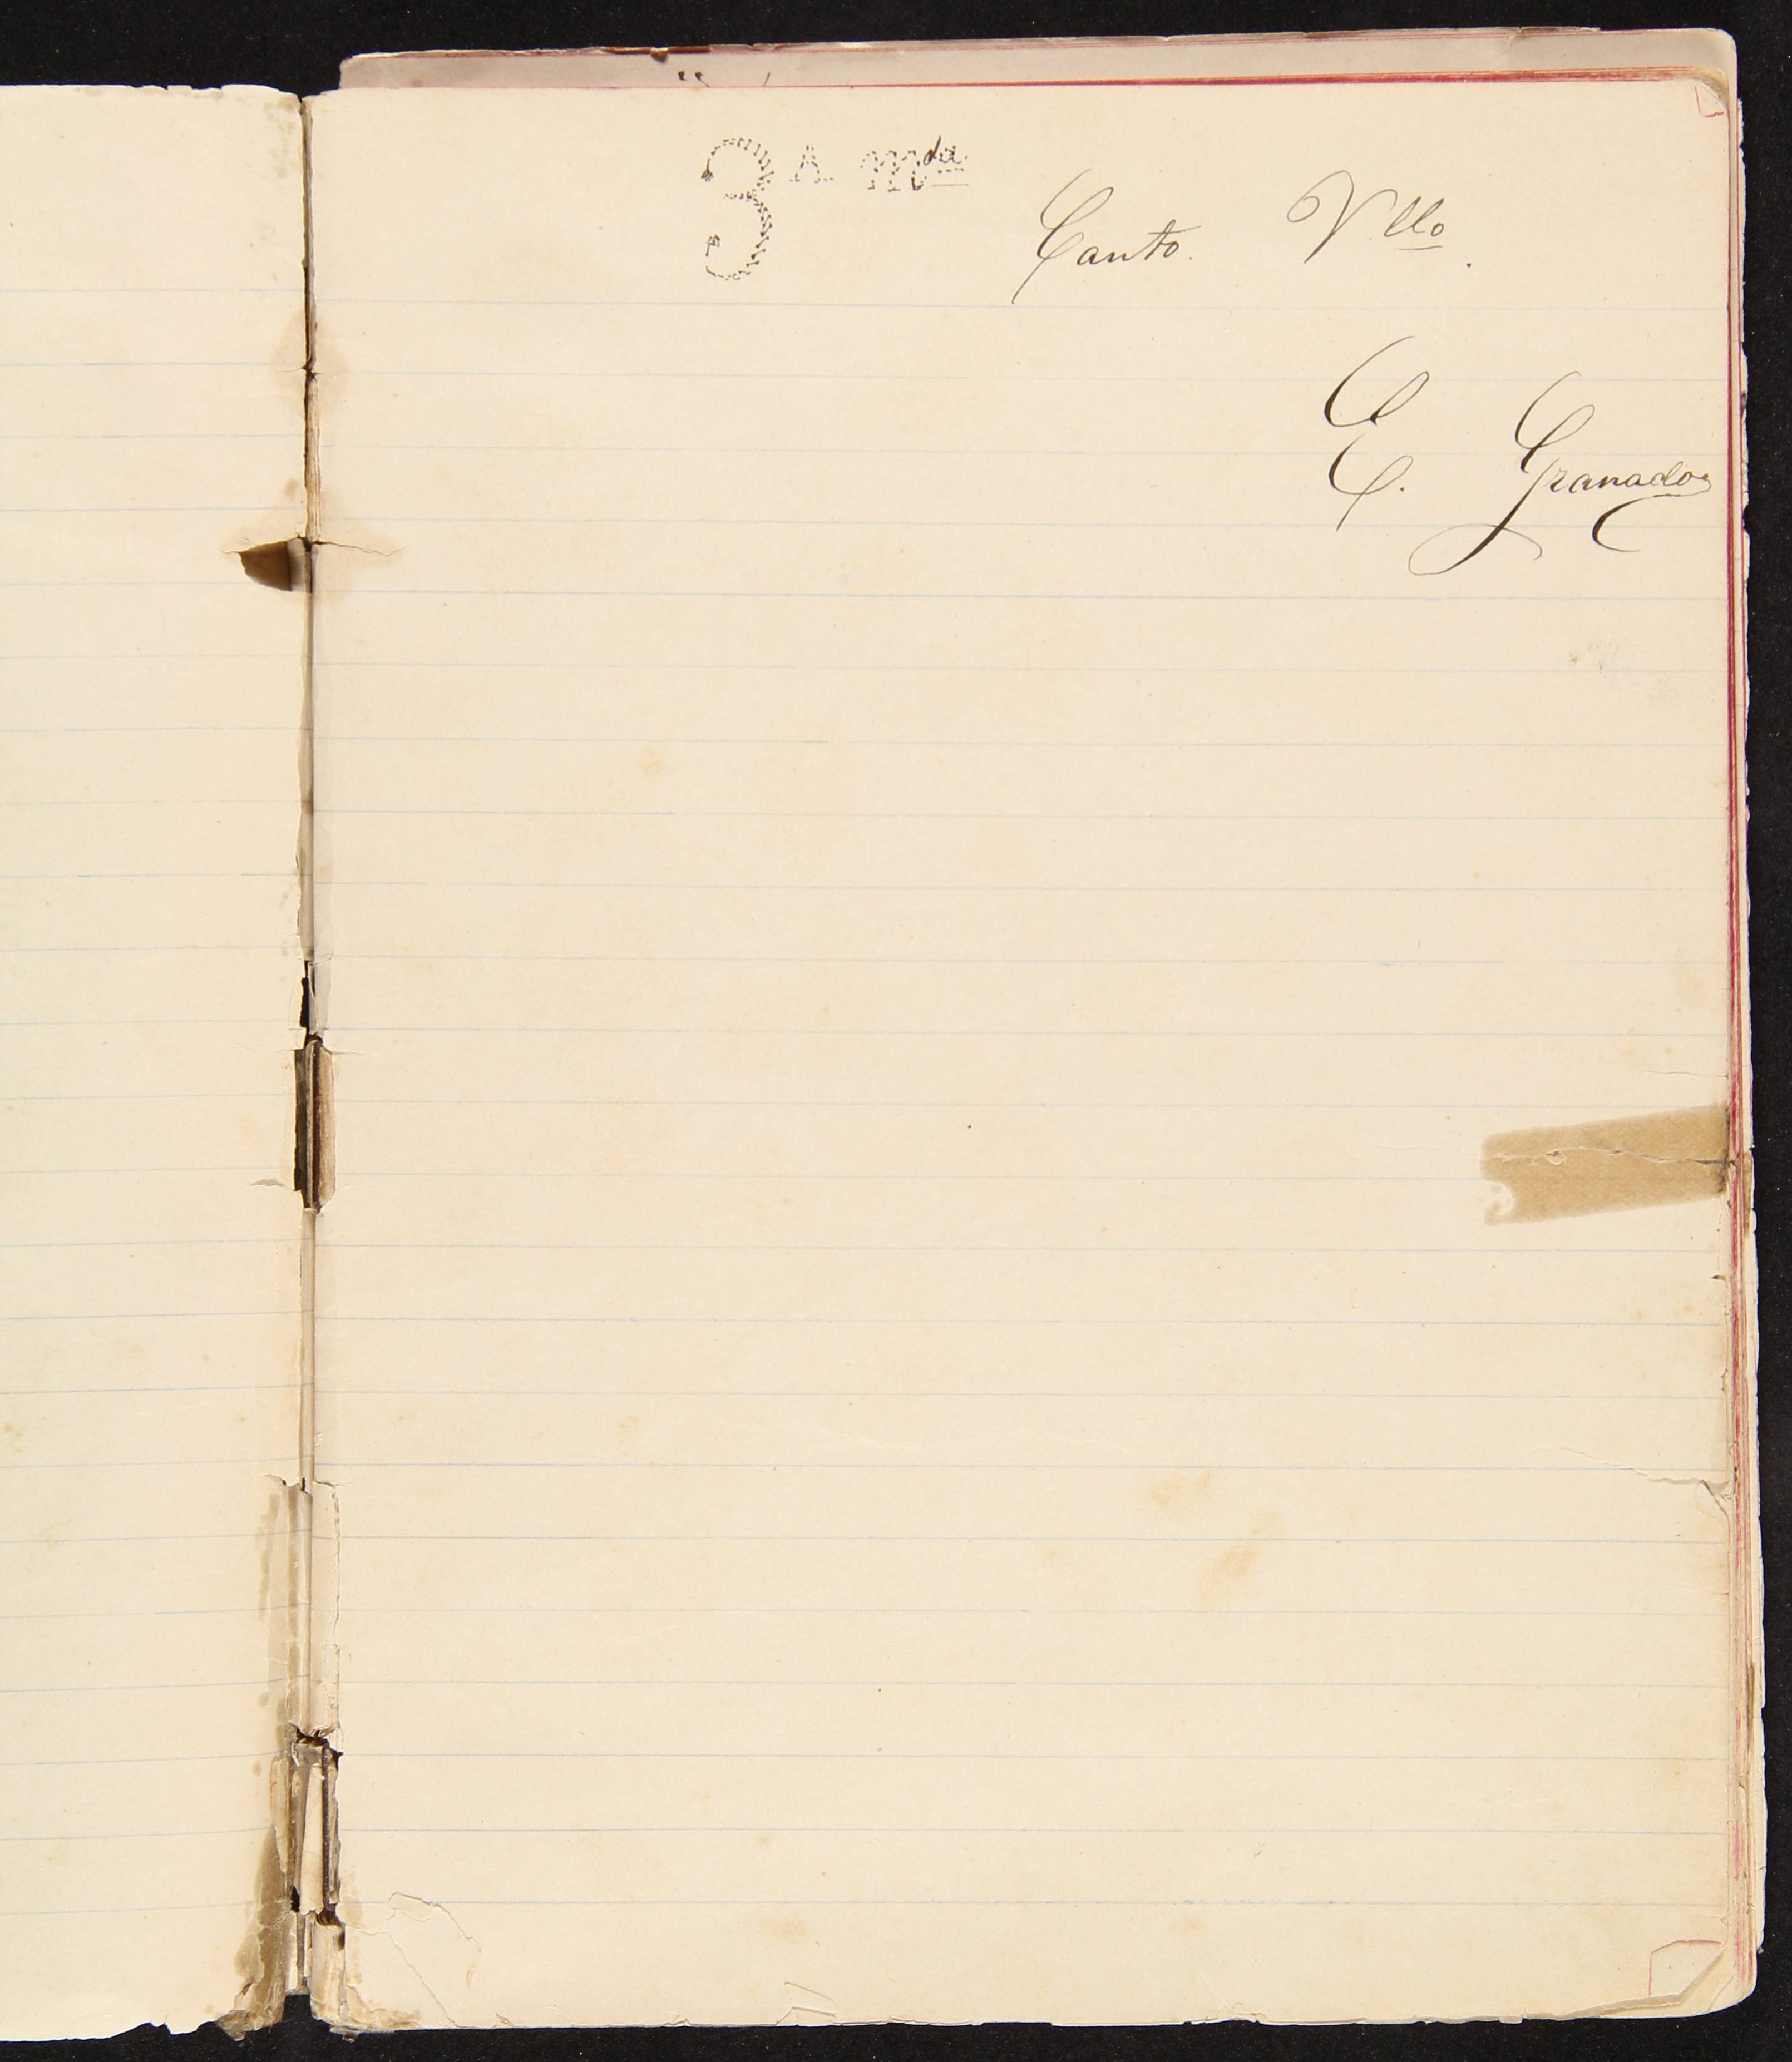 3A mda
Canto. Vllo.
E. Granados